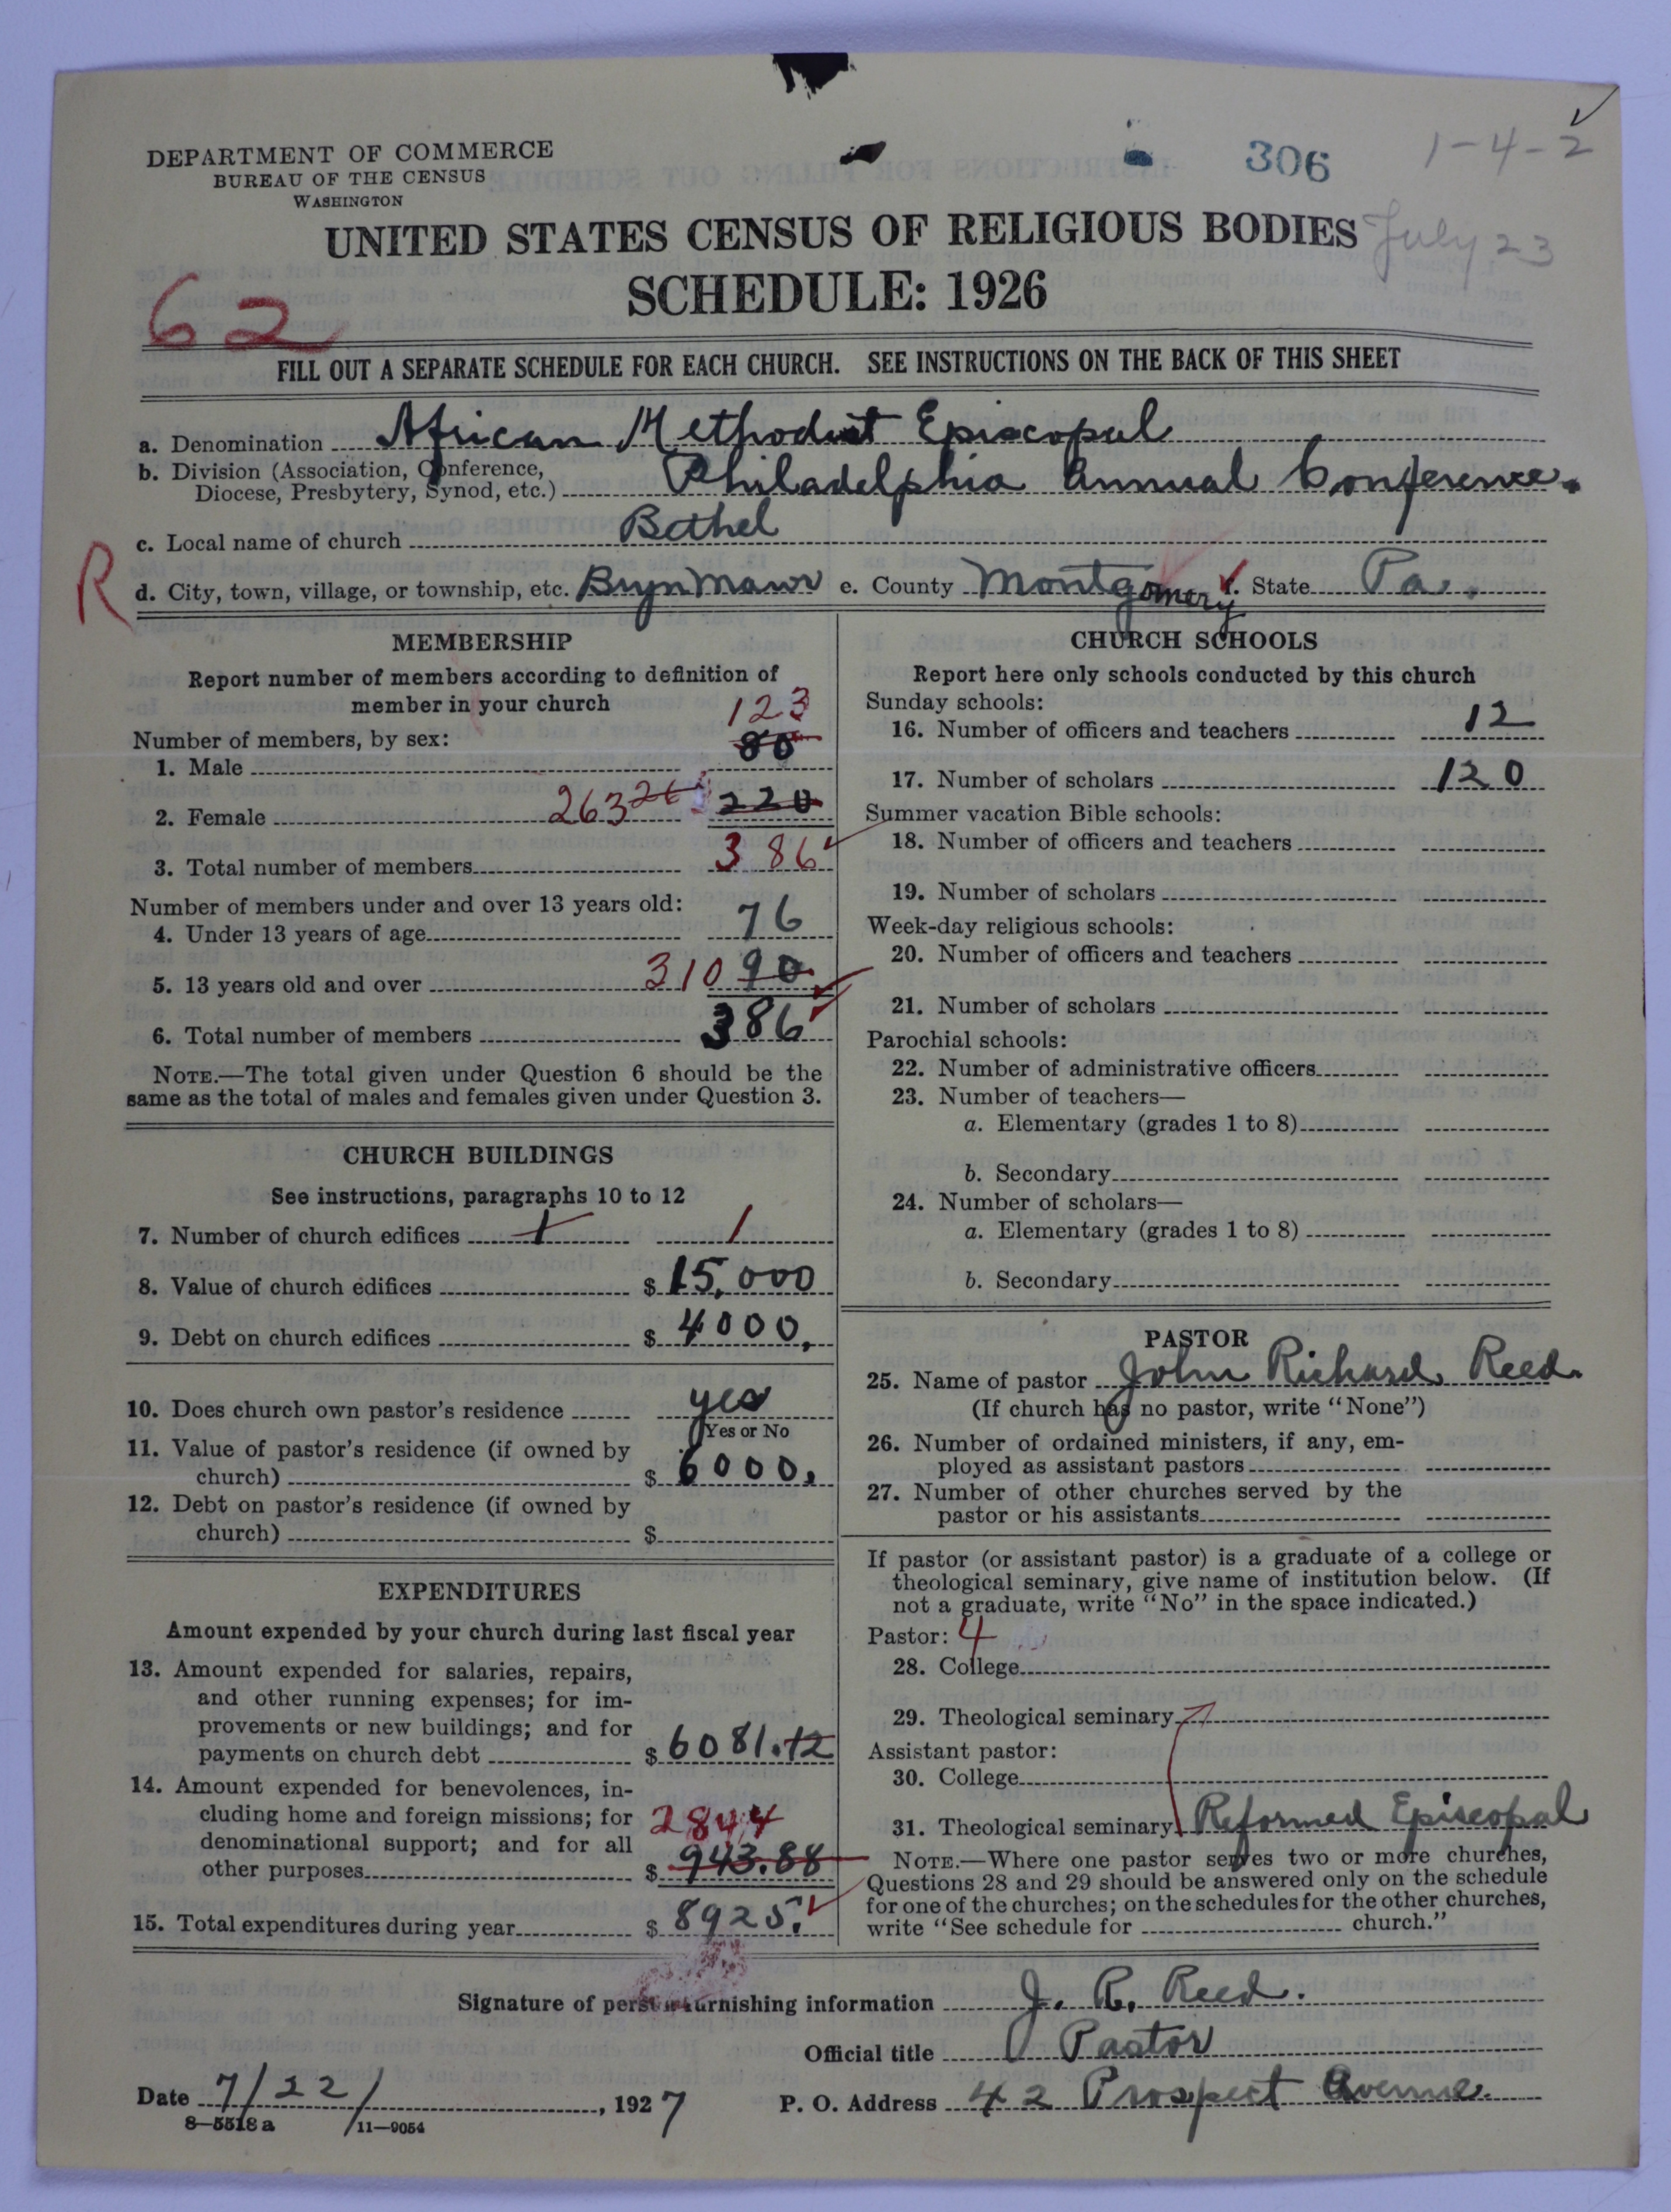 DEPARTMENT OF COMMERCE
BUREAU OF THE CENSUS
WASHINGTON
306
1-4-2
July 23
UNITED STATES CENSUS OF RELIGIOUS BODIES
SCHEDULE: 1926
62
FILL OUT A SEPARATE SCHEDULE FOR EACH CHURCH. SEE INSTRUCTIONS ON THE BACK OF THIS SHEET
a. Denomination African Methodist Episcopal
b. Division (Association, Conference,
Diocese, Presbytery, Synod, etc.) Philadelphia Annual Conference.
c. Local name of church Bethel
R
d. City, town, village, or township, etc. Bryn Mawr e. County Montgomery f. State Pa.
MEMBERSHIP
Report number of members according to definition of
member in your church
Number of members, by sex:
123
1. Male 80
2. Female 263 26 220
3. Total number of members 386
Number of members under and over 13 years old:
4. Under 13 years of age 76
5. 13 years old and over 310 90
6. Total number of members 386
NOTE.—The total given under Question 6 should be the
same as the total of males and females given under Question 3.
CHURCH BUILDINGS
See instructions, paragraphs 10 to 12
7. Number of church edifices 1 1
8. Value of church edifices $ 15,000
9. Debt on church edifices $ 4000.
10. Does church own pastor's residence yes
Yes or No
11. Value of pastor's residence (if owned by
church) $ 6000.
12. Debt on pastor's residence (if owned by
church) $
EXPENDITURES
Amount expended by your church during last fiscal year
13. Amount expended for salaries, repairs,
and other running expenses; for im-
provements or new buildings; and for
payments on church debt $ 6081.12
14. Amount expended for benevolences, in-
cluding home and foreign missions; for 2844
denominational support; and for all
other purposes $ 943.88
15. Total expenditures during year $ 8925.
CHURCH SCHOOLS
Report here only schools conducted by this church
Sunday schools:
16. Number of officers and teachers 12
17. Number of scholars 120
Summer vacation Bible schools:
18. Number of officers and teachers
19. Number of scholars
Week-day religious schools:
20. Number of officers and teachers
21. Number of scholars
Parochial schools:
22. Number of administrative officers
23. Number of teachers—
a. Elementary (grades 1 to 8)
b. Secondary
24. Number of scholars—
a. Elementary (grades 1 to 8)
b. Secondary
PASTOR
25. Name of pastor John Richard Reed.
(If church has no pastor, write "None")
26. Number of ordained ministers, if any, em-
ployed as assistant pastors
27. Number of other churches served by the
pastor or his assistants
If pastor (or assistant pastor) is a graduate of a college or
theological seminary, give name of institution below. (If
not a graduate, write "No" in the space indicated.)
Pastor: 4
28. College
29. Theological seminary
Assistant pastor:
30. College
31. Theological seminary Reformed Episcopal
NOTE.—Where one pastor serves two or more churches,
Questions 28 and 29 should be answered only on the schedule
for one of the churches; on the schedules for the other churches,
write "See schedule for church."
Signature of person furnishing information J. R. Reed.
Official title Pastor
Date 7/22/, 1927 P. O. Address 42 Prospect Avenue.
8—5518a 11—9054